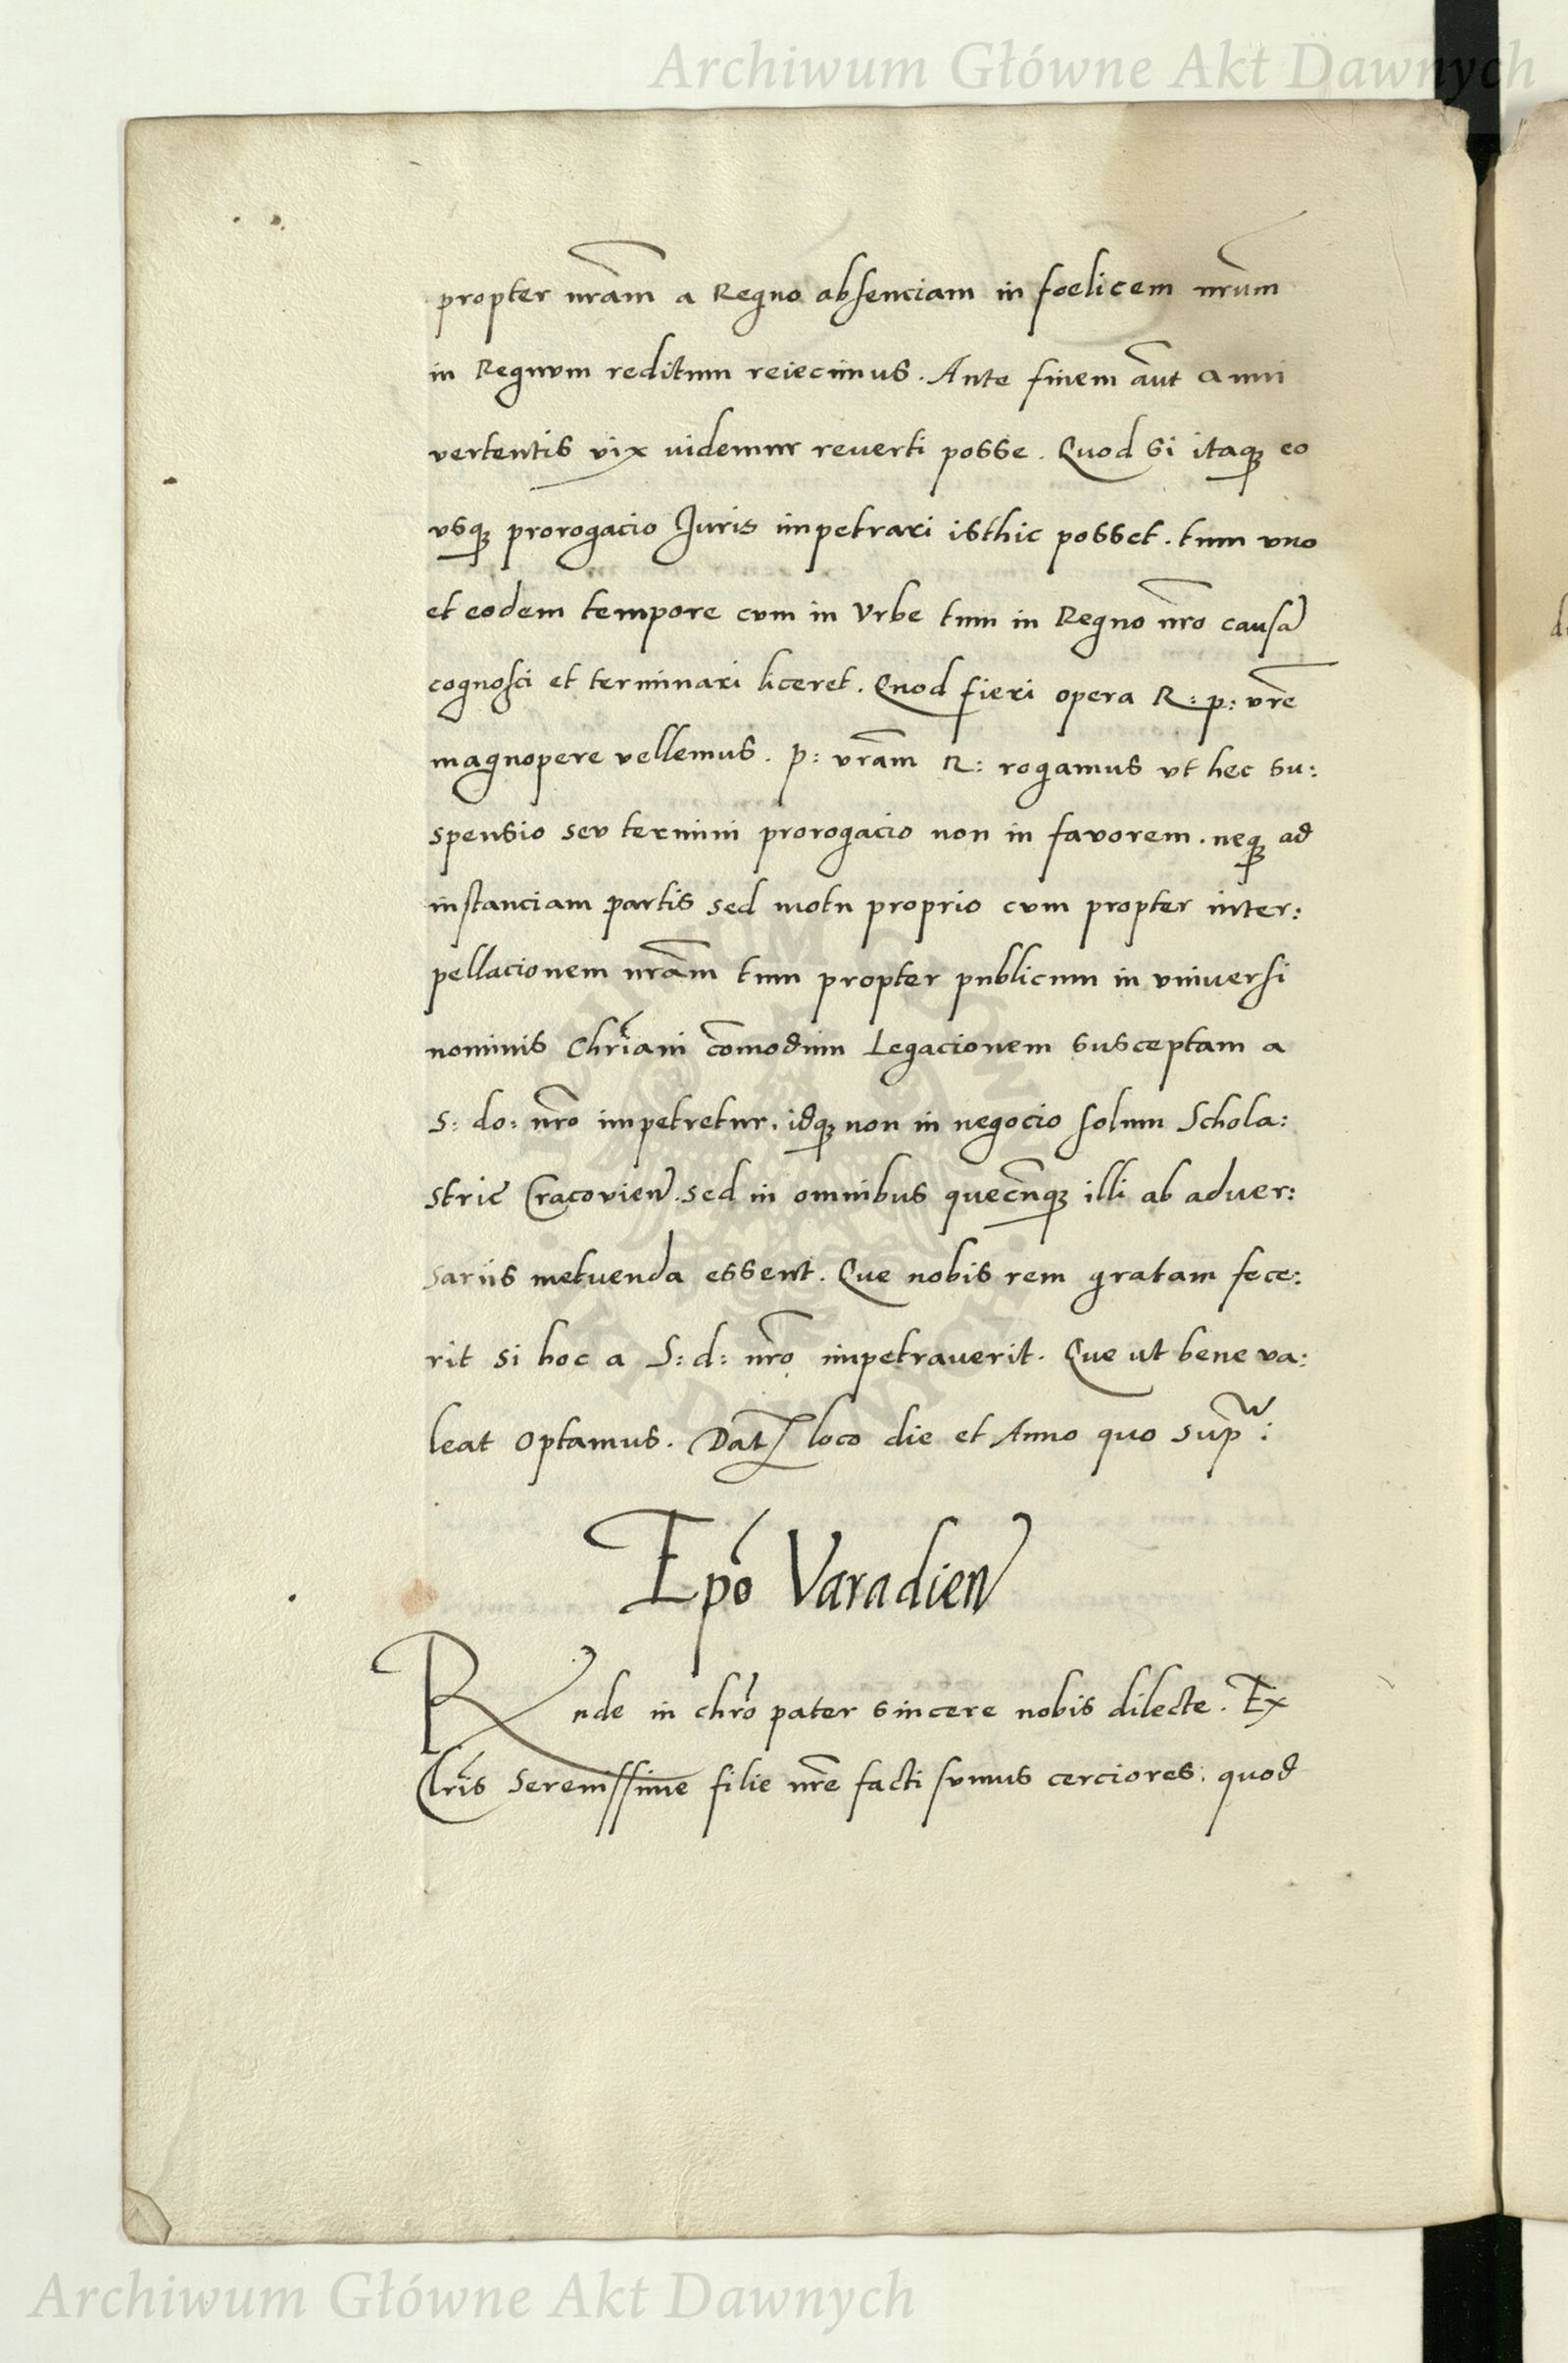 Archiwum Główne Akt Dawnych
propter nr̃am a Regno absenciam in foelicem nr̃um
in Regnum reditum reiecimus. Ante finem aũt anni
vertentis vix uidemur reuerti posse. Quod si itaqꝫ eo
vsqꝫ prorogacio Juris impetrari isthic posset. tum uno
et eodem tempore cum in Vrbe tum in Regno nr̃o causã
cognosci et terminari liceret. Quod fieri opera R: p: vr̃e
magnopere vellemus. p: vr̃am R: rogamus vt hec su:
spensio seu termini prorogacio non in favorem. neqꝫ ad
instanciam partis sed motu proprio cum propter inter:
pellacionem nr̃am tum propter publicum in vniuersi
nominis Chr̃iani cõmodum Legacionem susceptam a
S: do: nr̃o impetretur. idqꝫ non in negocio solum Schola:
strie Cracovien̄. sed in omnibus quecũnqꝫ illi ab aduer:
sariis metuenda essent. Que nobis rem gratam fece:
rit si hoc a S: d: nr̃o impetrauerit. Que ut bene va:
leat optamus. Dat̃ loco die et Anno quo supᷓ:
Ep̃o Varadien̄
Rnde in chr̃o pater sincere nobis dilecte. Ex
Lr̃is Serenissime filie nr̃e facti sumus cerciores. quod
Archiwum Główne Akt Dawnych